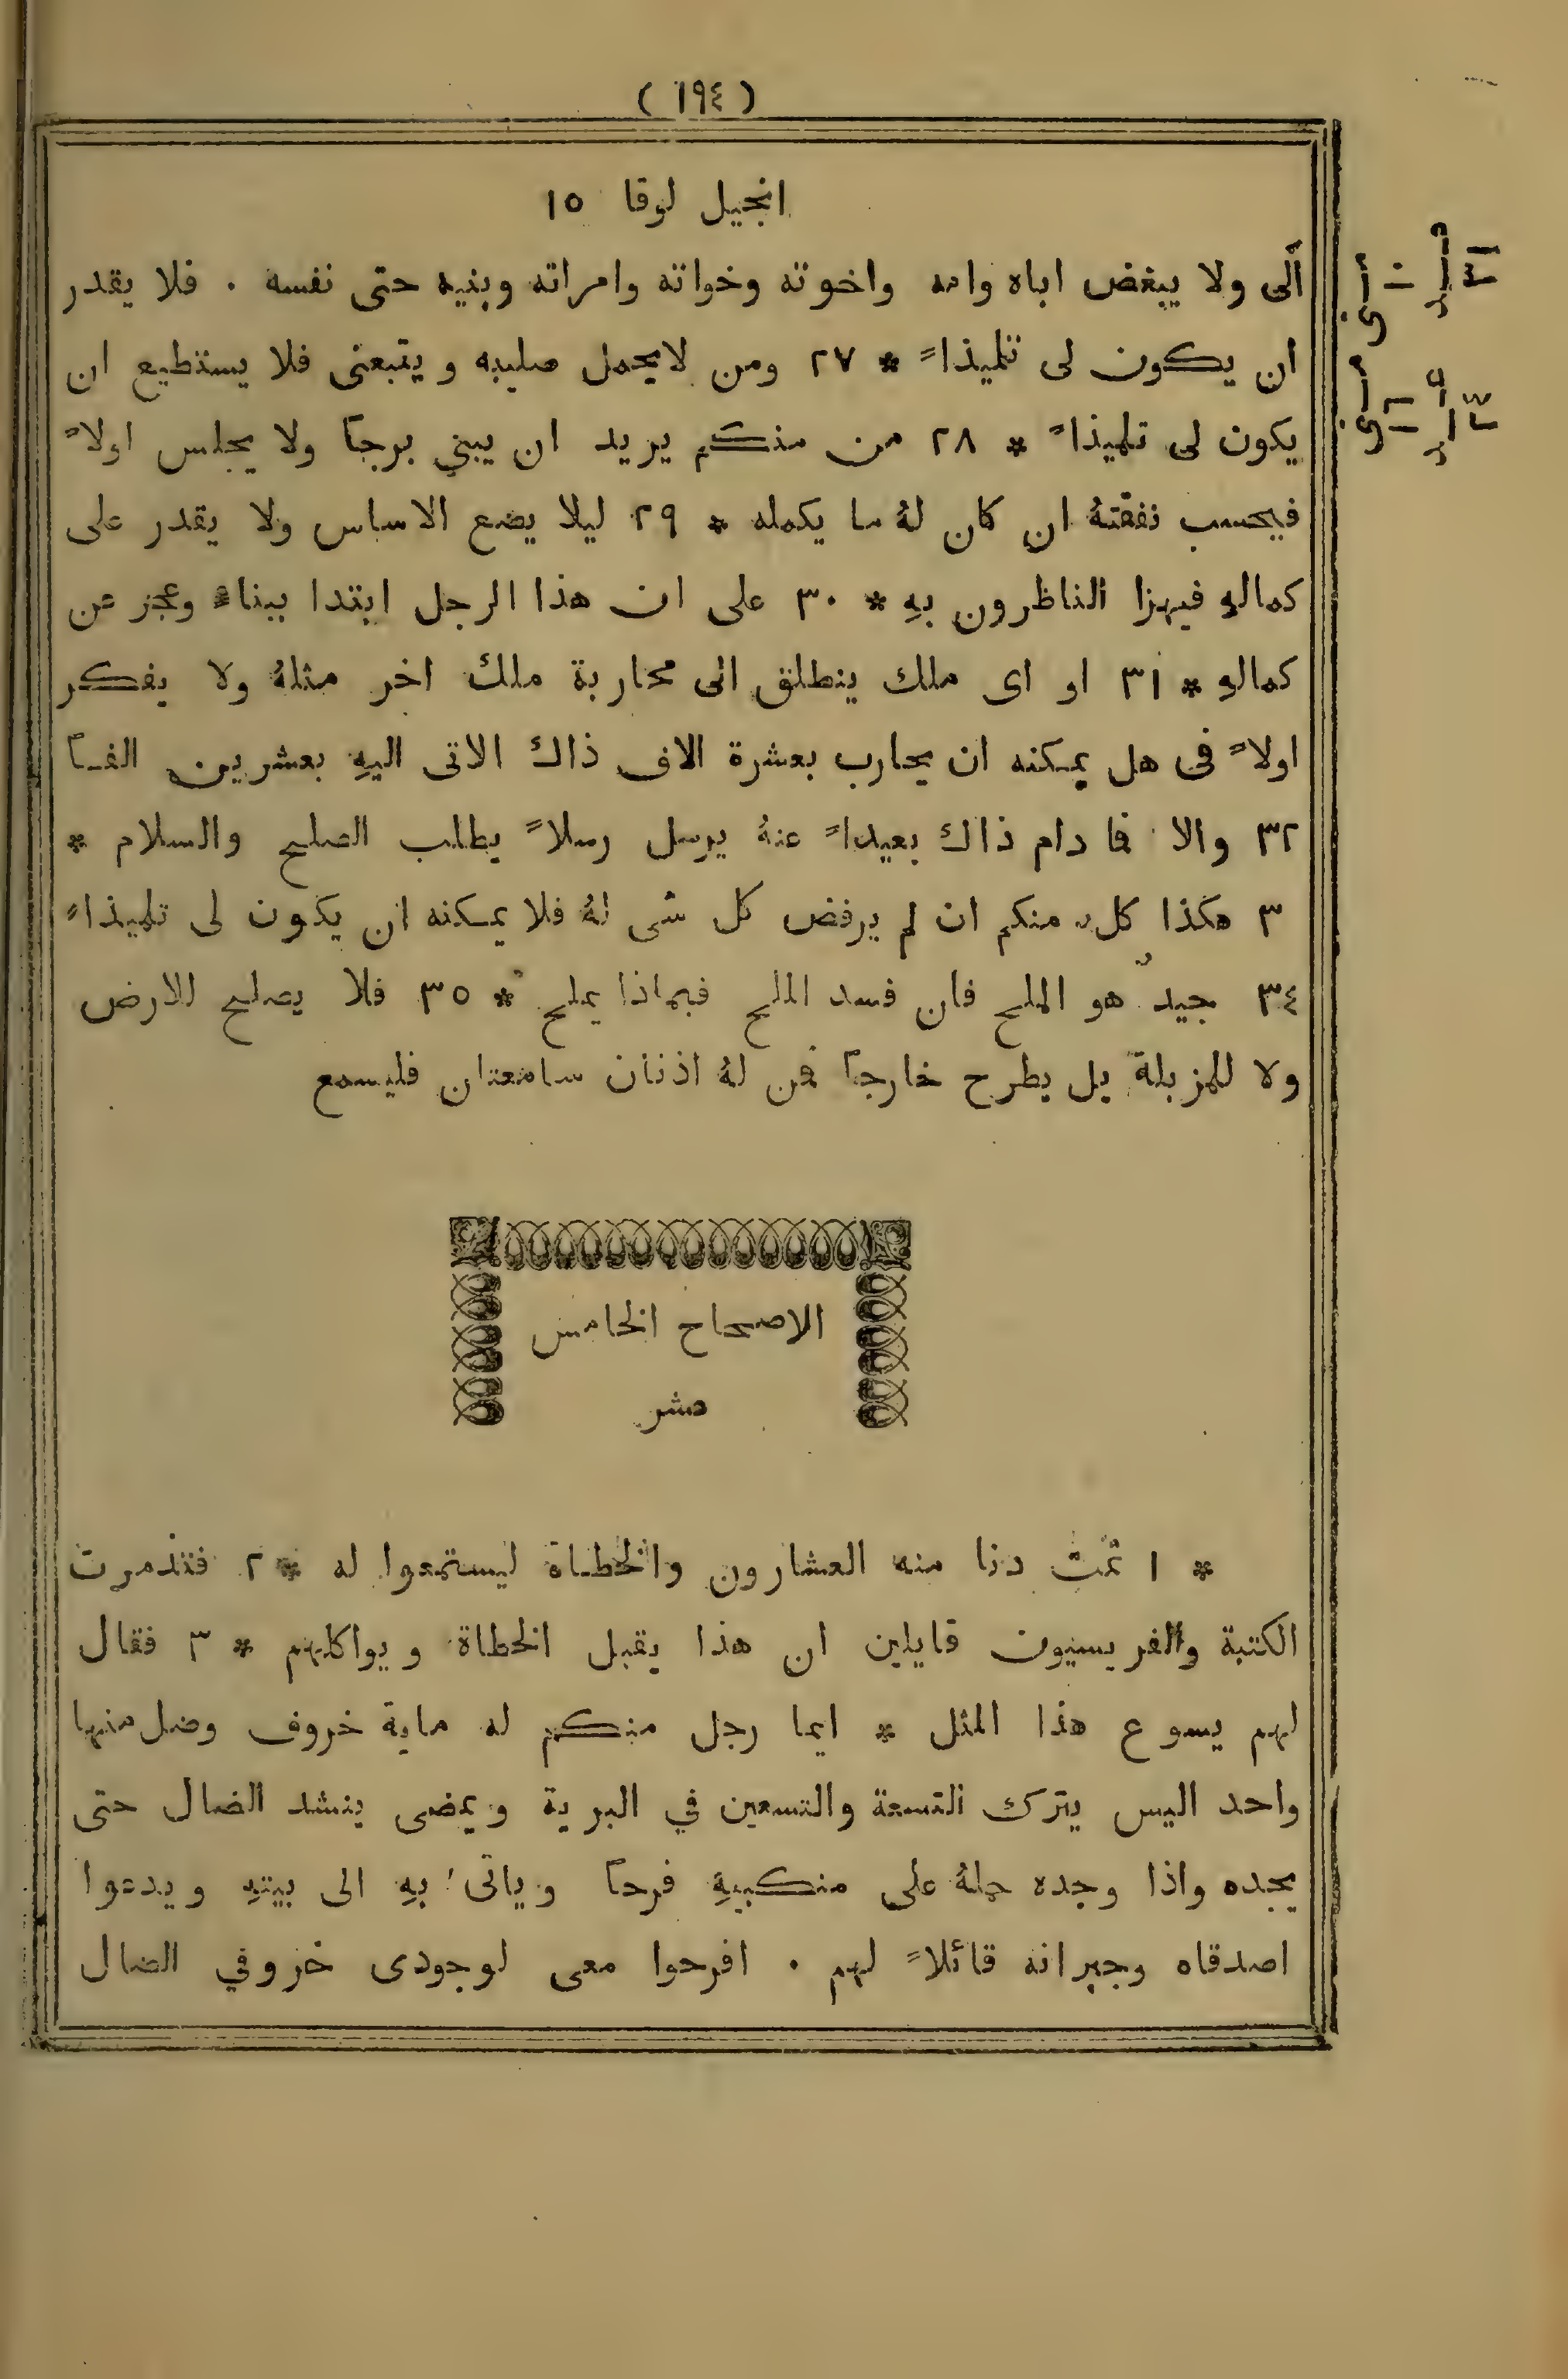 ( ١٩٤ )
انجيل لوقا ١٥
ألى ولا يبغض اباه وامه واخوته وخواته وامراته وبنيه حتى نفسه . فلا يقدر
ان يكون لى تلميذاً * ٢٧ ومن لايحمل صليبه ويتبعنى فلا يستطيع ان
يكون لى تلميذاً * ٢٨ من منكم يريد ان يبني برجاً ولا يجلس اولاً
فيحسب نفقتهُ ان كان لهُ ما يكمله * ٢٩ ليلا يضع الاساس ولا يقدر على
كمالهِ فيهزا الناظرون بهِ * ٣٠ على ان هذا الرجل ابتدا ببناء وعجز عن
كمالهِ * ٣١ او اى ملك ينطلق الى محاربة ملك اخر مثلهُ ولا يفكر
اولاً فى هل يمكنه ان يحارب بعشرة الاف ذاك الاتى اليهِ بعشرين الفاً
٣٢ والا فما دام ذاك بعيداً عنهُ يرسل رسلاً يطلب الصلح والسلام *
٣ هكذا كل منكم ان لم يرفض كل شى لهُ فلا يمكنه ان يكون لى تلميذاً
٣٤ جيدٌ هو الملح فان فسد الملح فبماذا يملح * ٣٥ فلا يصلح للارض
ولا للمزبلة بل يطرح خارجاً فمن لهُ اذنان سامعتان فليسمع
الاصحاح الخامس
عشر
* ١ ثمت دنا منه العشارون والخطاة ليستمعوا له * ٢ فتذمرت
الكتبة والفريسيون قايلين ان هذا يقبل الخطاة ويواكلهم * ٣ فقال
لهم يسوع هذا المثل * ايما رجل منكم له ماية خروف وضل منها
واحد اليس يترك التسعة والتسعين في البرية ويمضى ينشد الضال حتى
يجده واذا وجده حملهُ على منكبيهِ فرحاً وياتى بهِ الى بيتهِ ويدعوا
اصدقاه وجيرانه قائلاً لهم . افرحوا معى لوجودى خروفي الضال